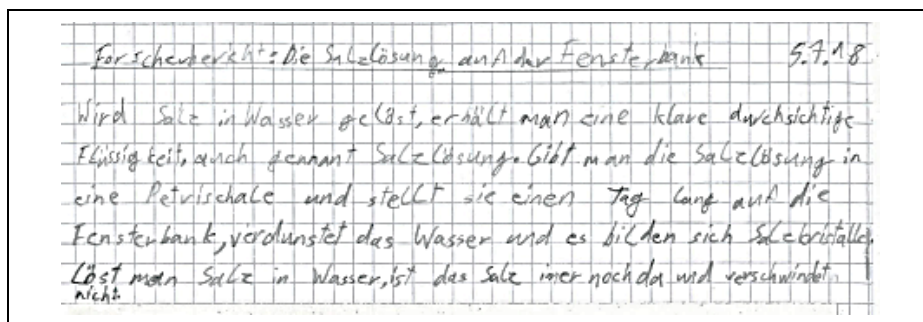 Forscherbericht: Die Salzlösung auf der Fensterbank 5.7.18
Wird Salz in Wasser gelöst, erhält man eine klare durchsichtige
Flüssigkeit, auch gennant Salzlösung. Gibt man die Salzlösung in
eine Petrischale und stellt sie einen Tag lang auf die
Fensterbank, verdunstet das Wasser und es bilden sich Salzkristalle.
Löst man Salz in Wasser, ist das Salz imer noch da und verschwindet
nicht.